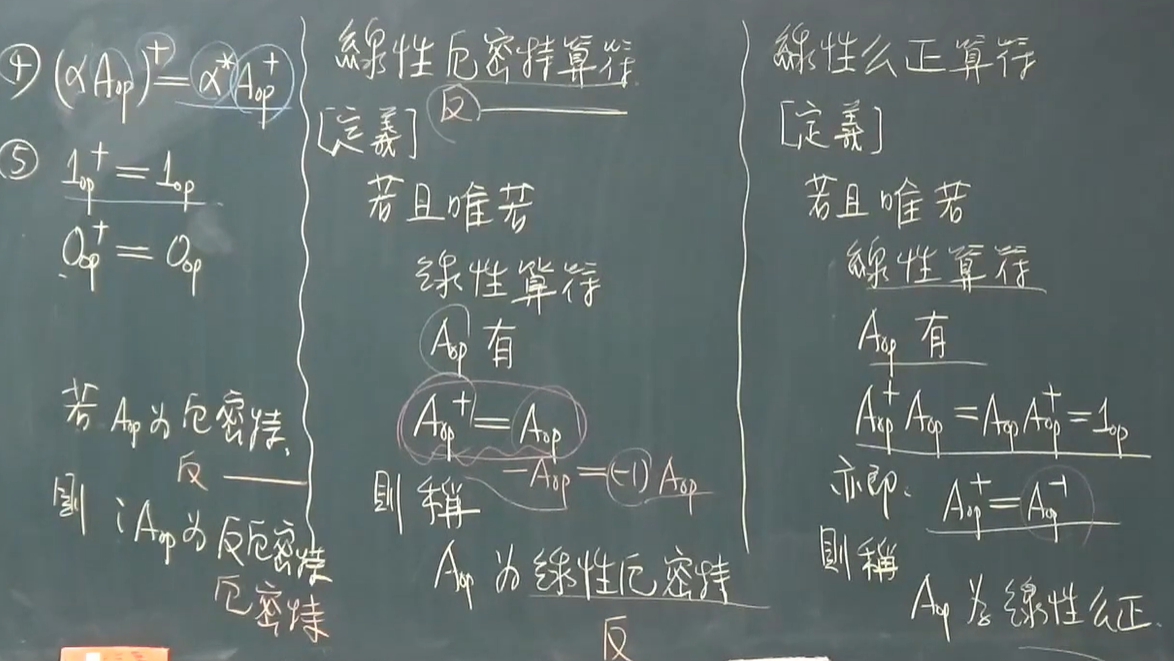 ④ (αA_op)^+ = α* A_op^+
⑤ 1_op^+ = 1_op
0_op^+ = 0_op
若 A_op 為 厄密特,
反 ——
則 iA_op 為 反厄密特
厄密特
線性厄密特算符
反 ——
[定義]
若且唯若
線性算符
A_op 有
A_op^+ = A_op
-A_op = (-1) A_op
則稱
A_op 為 線性厄密特
反
線性么正算符
[定義]
若且唯若
線性算符
A_op 有
A_op^+ A_op = A_op A_op^+ = 1_op
亦即. A_op^+ = A_op^-1
則稱
A_op 為 線性么正.